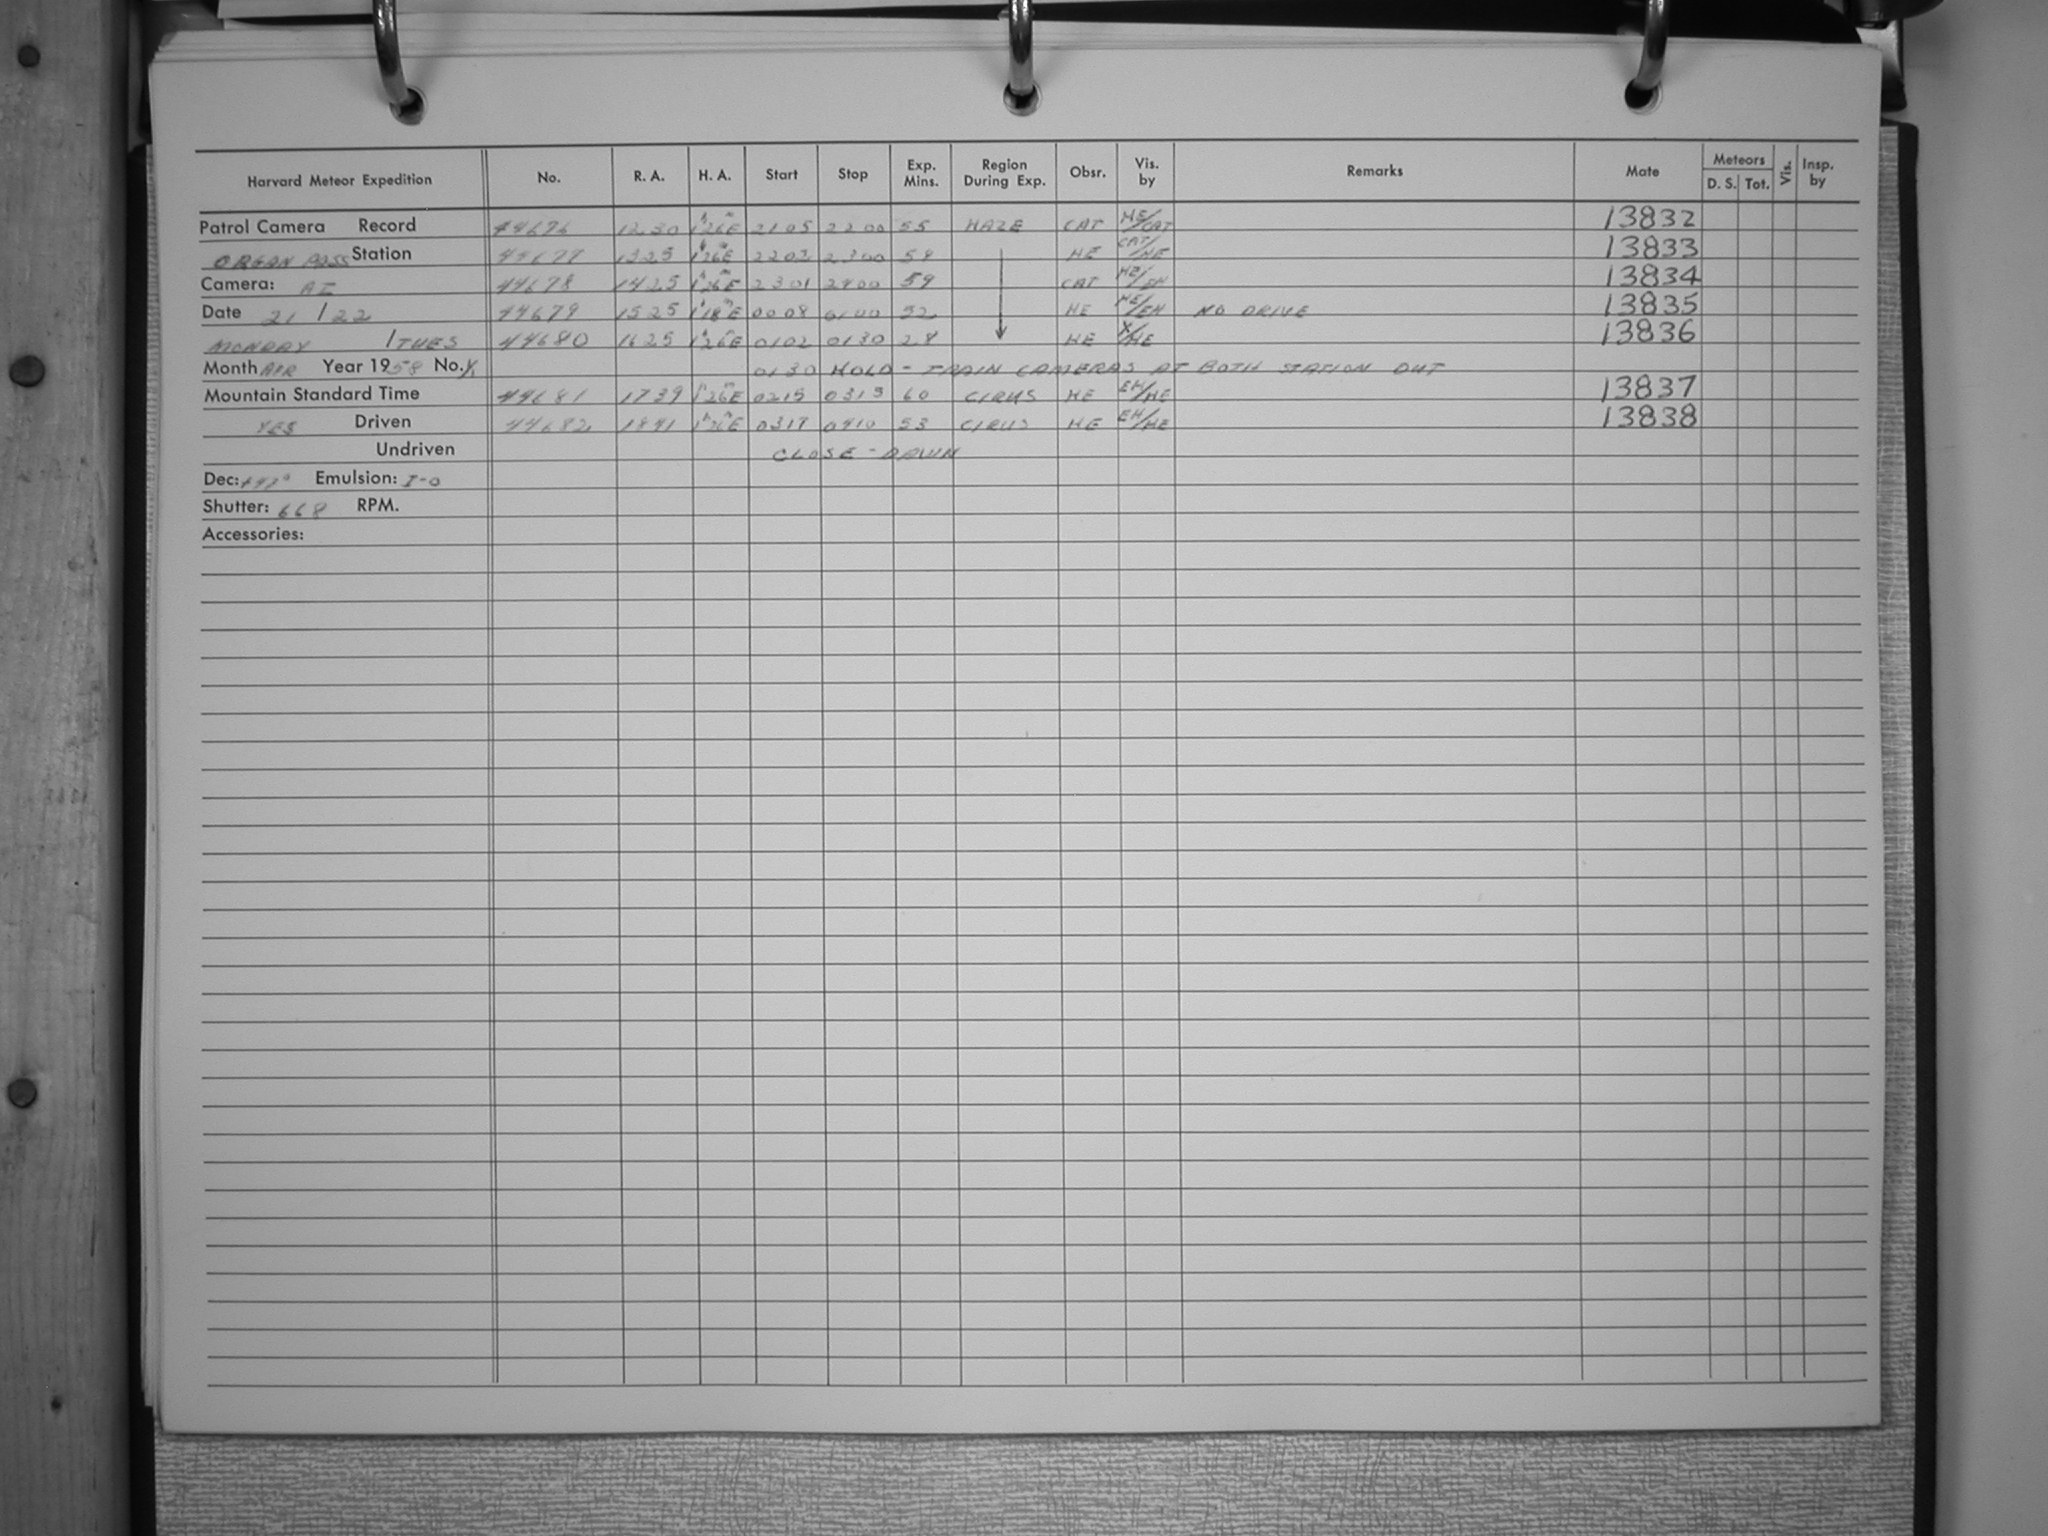 Harvard Meteor Expedition No. R. A. H. A. Start Stop Exp. Mins. Region During Exp. Obsr. Vis. by Remarks Mate Meteors D. S. Tot. Vis. Insp. by
Patrol Camera Record 44676 1230 1h26mE 2105 2200 55 HAZE CAT HE/CAT 13832
ORGAN PASS Station 44677 1325 1h26mE 2202 2300 58 HE CAT/HE 13833
Camera: 44678 1425 1h26mE 2301 2400 59 CAT HE/EH 13834
Date 21/22 44679 1525 1h18mE 0008 0100 52 HE HE/EH NO DRIVE 13835
MONDAY /TUES 44680 1625 1h26mE 0102 0130 28 HE X/HE 13836
Month APR Year 1958 No. 0130 HOLD - TRAIN CAMERAS AT BOTH STATION OUT
Mountain Standard Time 44681 1739 1h26mE 0215 0315 60 CIRUS HE EH/HE 13837
YES Driven 44682 1841 1h26mE 0317 0410 53 CIRUS HE EH/HE 13838
Undriven CLOSE - DAWN
Dec: Emulsion: I-O
Shutter: 668 RPM.
Accessories: